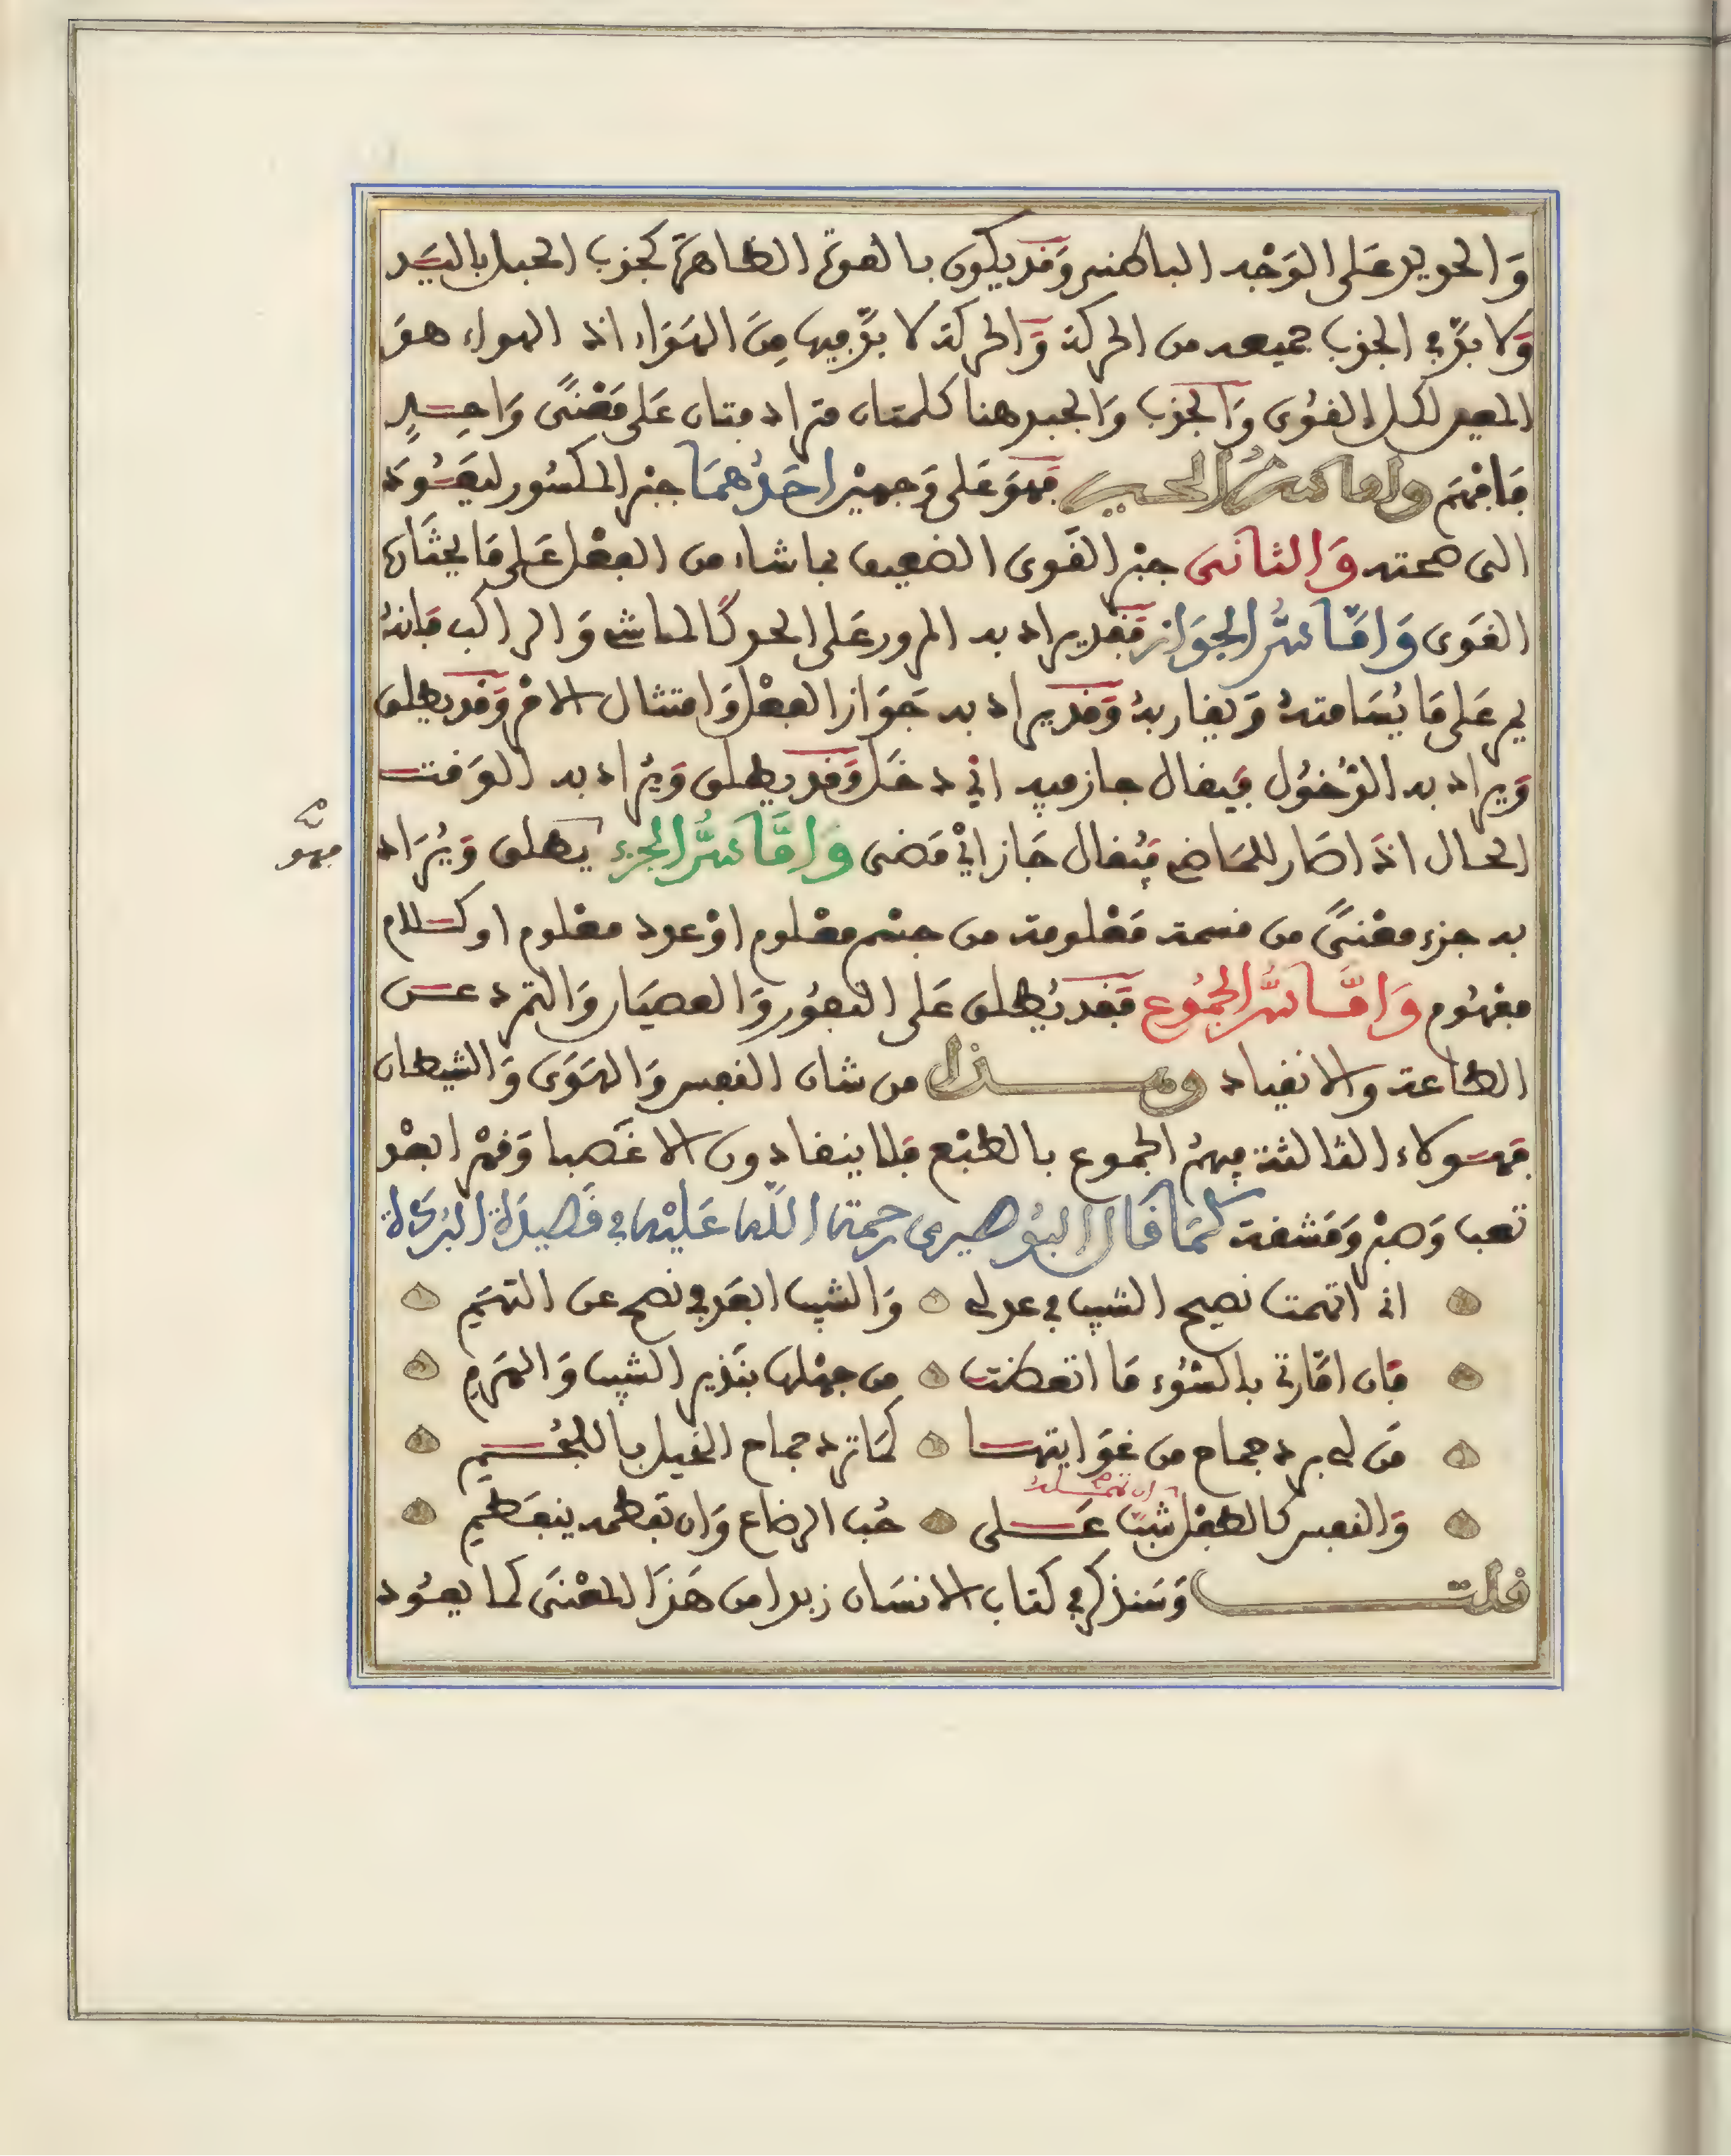 وَالحويل عَلى الوَجْه الباطنى وَقَد يكون بالقوة الظاهرَة كجذب الحبل باليَد
وَلا بدّ فى الجذب جميعه من الحركة وَالحركة لا بدّ فيها مِنَ الهَوَاء اذ الهواء هوَ
المعين لكل القوى وَالجذب وَالجبد هنا كلمتان مترادفتان عَلى مَعْنًى وَاحِدٍ
فَافهَم وأما سرُّ الجبر فَهوَ عَلى وَجهيْن احَدُهمَا جبْر المكسُور ليَعُودَ
الى صحته وَالثانى جبْر القَوى الضعيف بما شاء من الفعْل عَلى مَا يختَاره
القوَى وَامَّا سرُّ الجوَاز فَقَد يراد به المرور عَلى الحد كالماشى وَالراكب فَانهُ
يمر عَلى مَا يُسَامتهُ وَيقاربهُ وَقَد يراد به جَوَاز الفعْل وَامتثال الامْر وَقَد يطلق
وَيراد به الدُخُول فيقال جاز فيه اىْ دخَل وَقَد يطلق وَيُراد به الوَقت
الحال اذَا صَار للمَاضى فيُقال جَاز اىْ مَضى وَامَّا سرُّ الجزء يطلق وَيُرَاد
فهو
صح
به جزء معْنىً من قسمة مَعْلومة من جسْم معْلوم اوْ عدد معْلوم او كلام
مفهُوم وَامَّا سرُّ الجمُوع فَقَد يُطلق عَلى النفُور وَالعصيَان وَالتمرد عن
الطاعة والانقياد وهذا من شان النفس وَالهَوَى وَالشيطان
فَهَولاء الثالثة فيهمُ الجموع بالطبْع فَلا ينقادون الا غَصبا وَقهْرا بعْد
تعب وَصبْر وَمَشقة كمَا قَال البُوصيرى رحمة اللّه عَليْه فى قَصيدَة البُردَة
انى اتهمت نصيح الشيب فى عدلى وَالشيب ابعَد فى نصح عن التهَم
فَان امَّارتى بالسُّوء مَا اتعظت من جهْلها بنَذير الشيب وَالهَرَم
مَن لى برد جماح من غوَايتها كمَا ترد جماح الخيل باللجُم
وَالنفس كالطفْل ان تهمله شبَّ عَلى حُب الرضاع وَان تفطمه ينفَطم
قلت وَسَنذكر فى كتاب الانسَان زبدا من هَذَا المعْنَى كما يعُود